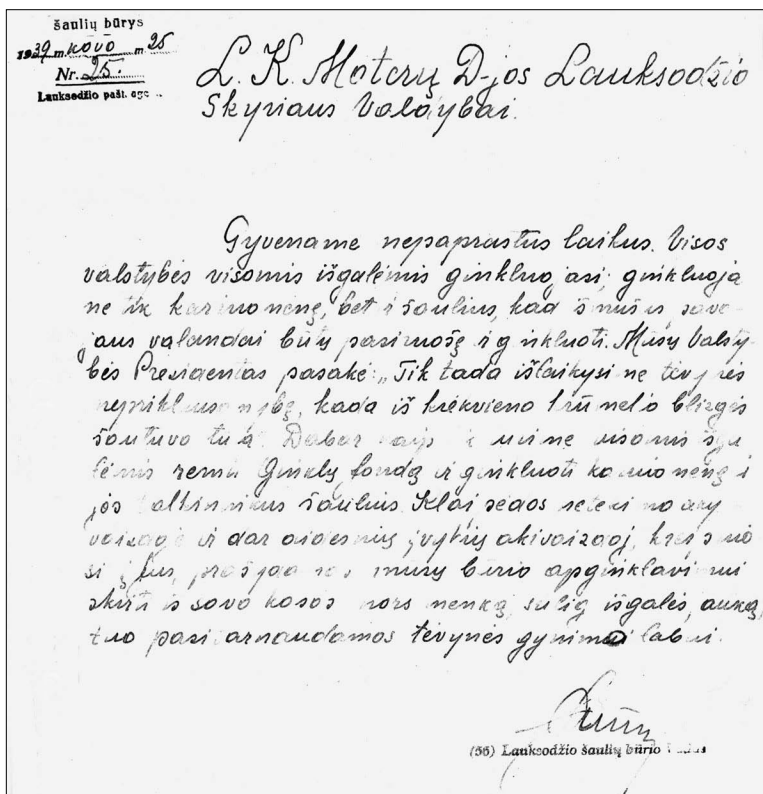 šaulių būrys
1939 m. kovo m. 25
Nr. 25.
Lauksodžio pašt. age
L. K. Moterų D-jos Lauksodžio
Skyriaus Valdybai.
Gyvename nepaprastus laikus. Visos
valstybės visomis išgalėmis ginkluojasi; ginkluoja
ne tik kariuomenę, bet ir šaulius, kad išmušus savo-
jaus valandai būtų pasiruošę ir ginkluoti. Mūsų Valsty-
bės Prezidentas pasakė: „Tik tada išlaikysime tėvynės
nepriklausomybę, kada iš kiekvieno krūmelio blizgės
šautuvo Dabar visomis išga
lėmis remti Ginklų fondą ir ginkluoti kariuomenę ir
jos talkininkus šaulius. Klaipėdos netekimo
ir dar didesnių įvykių akivaizdoj, kreip
si į Jus, mūsų būrio apginklavimui
skirti iš savo kasos nors menką, sulig išgalės, auką,
tuo pasitarnaudamos tėvynės gynimo labui.
(56) Lauksodžio šaulių būrio vadas